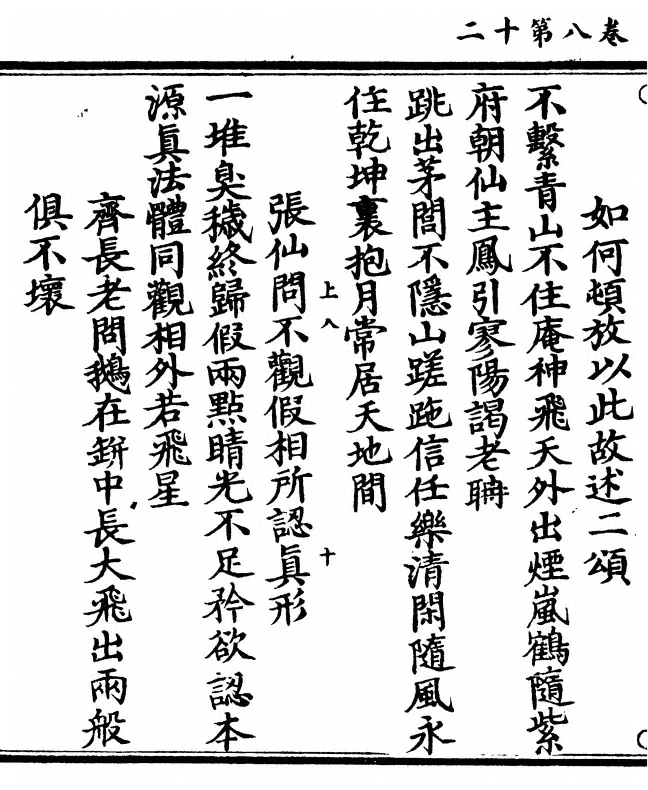 卷八第十二
如何頓放以此故述二頌
不繫青山不住庵神飛天外出煙嵐鶴隨紫
府朝仙主鳳引寥陽謁老聃
跳出茅閻不隱山蹉跎信任樂清閑隨風永
住乾坤裏抱月常居天地間
上八
十
張仙問不觀假相所認眞形
一堆臭穢終歸假兩點睛光不足矜欲認本
源眞法體同觀相外若飛星
齊長老問鵝在缾中長大飛出兩般
俱不壞